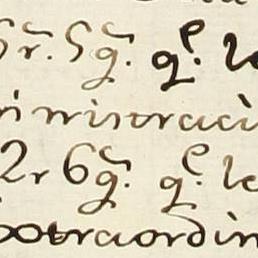 5r. 5q. q.e le
ministraci
2r 6q. q.e le
extraordin